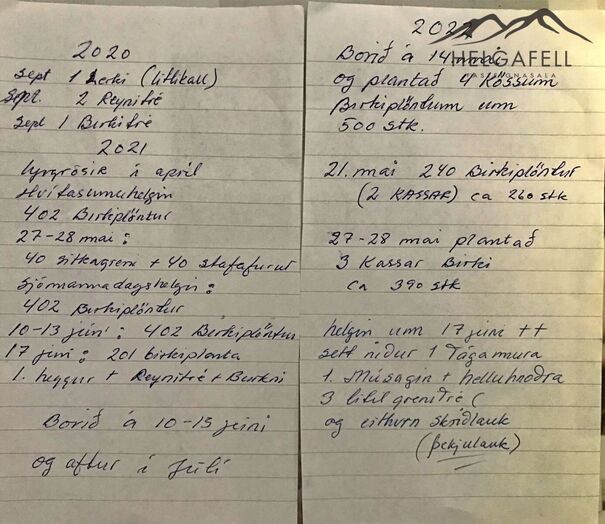 2020
Sept 1 Lerki (litlikall)
Sept. 2 Reynitré
Sept 1 Birkitré
2021
Lyngrósir í apríl
Hvítasunnuhelgin
402 Birkiplöntur
27-28 mai:
40 sitkagreni + 40 stafafurur
Sjómannadagshelgin:
402 Birkiplöntur
10-13 júní: 402 Birkiplöntur
17 júní: 201 birkiplanta
1. heggur + Reynitré + Berkni
Borið á 10-15 júní
og aftur í Júlí
HELGAFELL
FASTEIGNASALA
2022
Borið á 14 mai
og plantað 4 Kössum
Birkiplöntum um
500 stk.
21. mai 240 Birkiplöntur
(2 KASSAR) ca 260 stk
27-28 mai plantað
3 Kassar Birki
ca 390 stk
helgin um 17 júní ++
sett niður 1 Tágamura
1. Músagin + helluhnoðra
3 lítil grenitré (
og eithvrn skriðlauk
(þekjulauk)